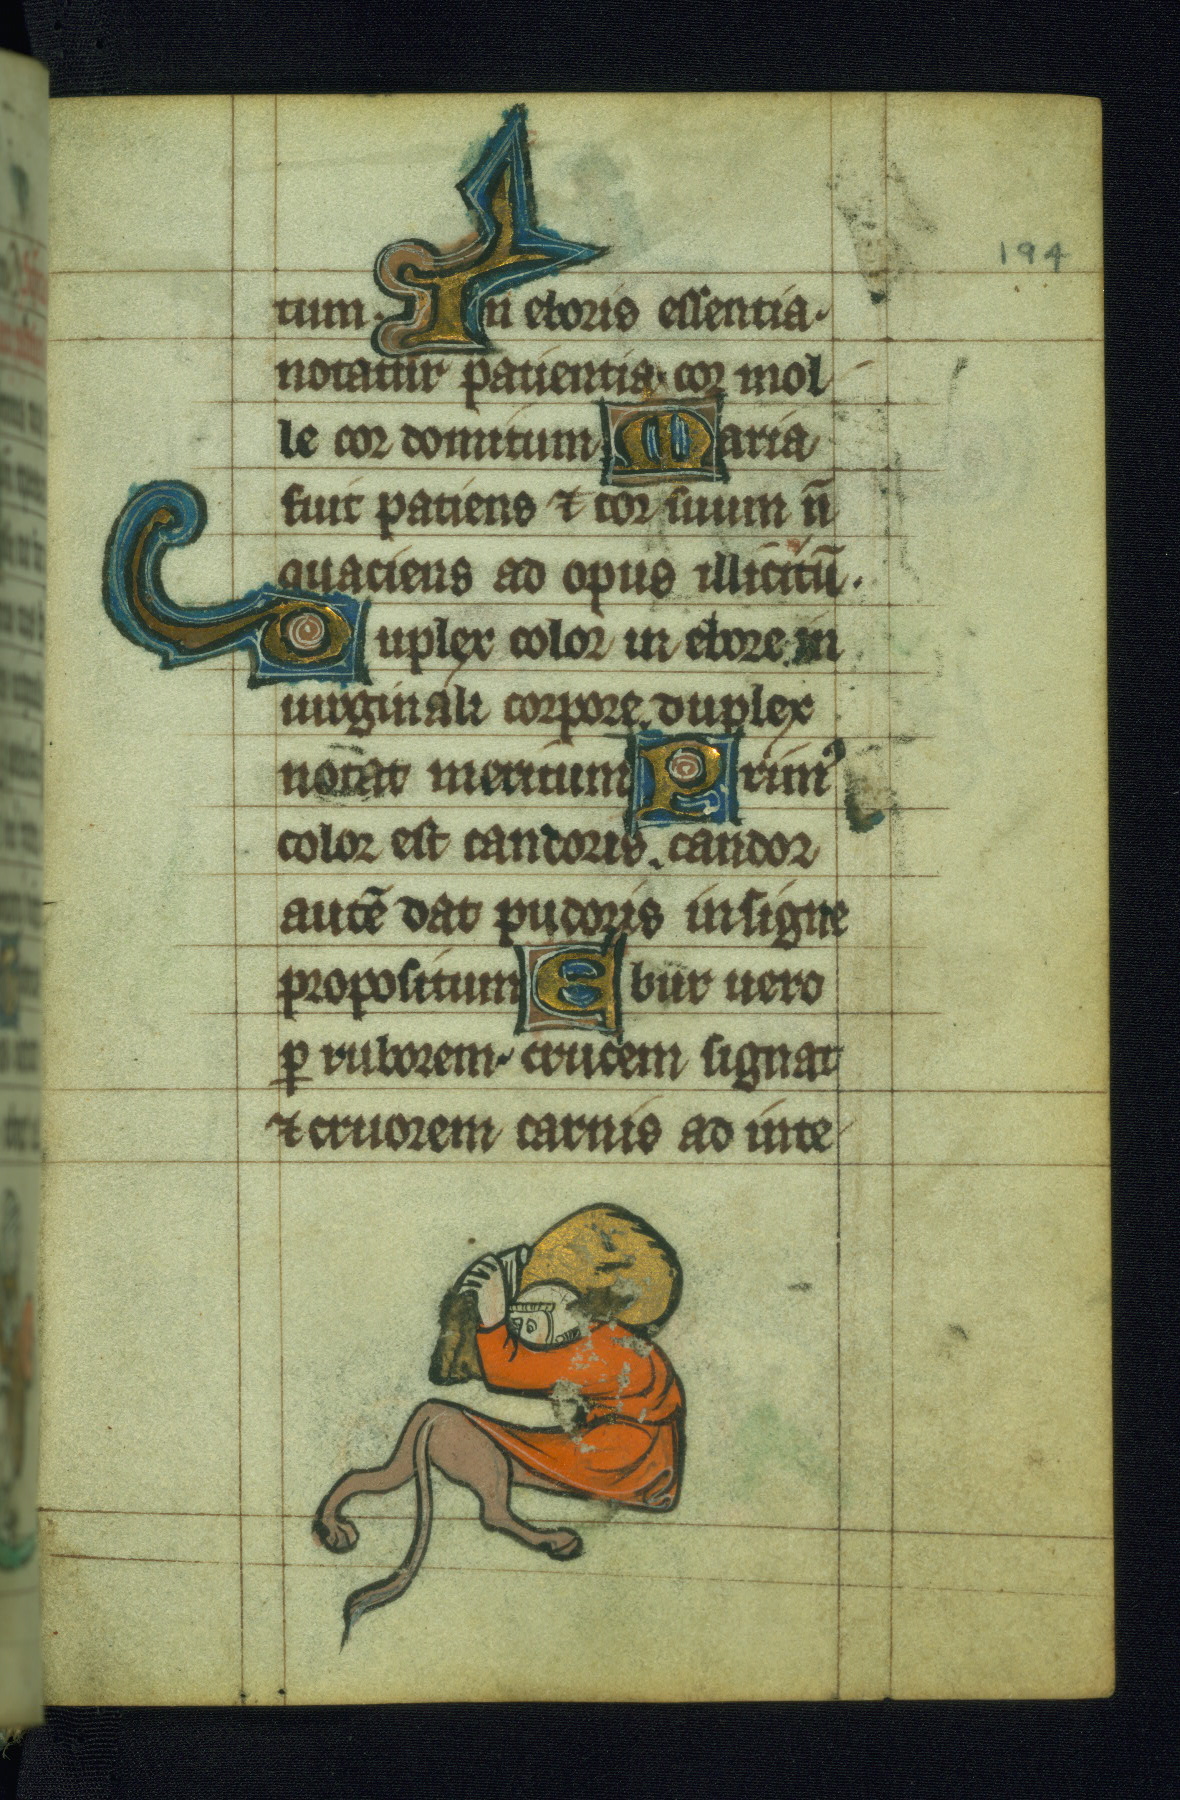 194
tum. In eboris essentia.
notatur patientia. cor mol
le cor domitum. Maria
fuit patiens ⁊ cor suum n̄
quaciens ad opus illicitū.
Duplex color in ebore. in
uirginali corpore. duplex
notat meritum. Primꝰ
color est candoris. candor
autē dat pudoris insigne
propositum. Ebur uero
ꝑ ruborem. crucem signat
⁊ cruorem carnis ad inte